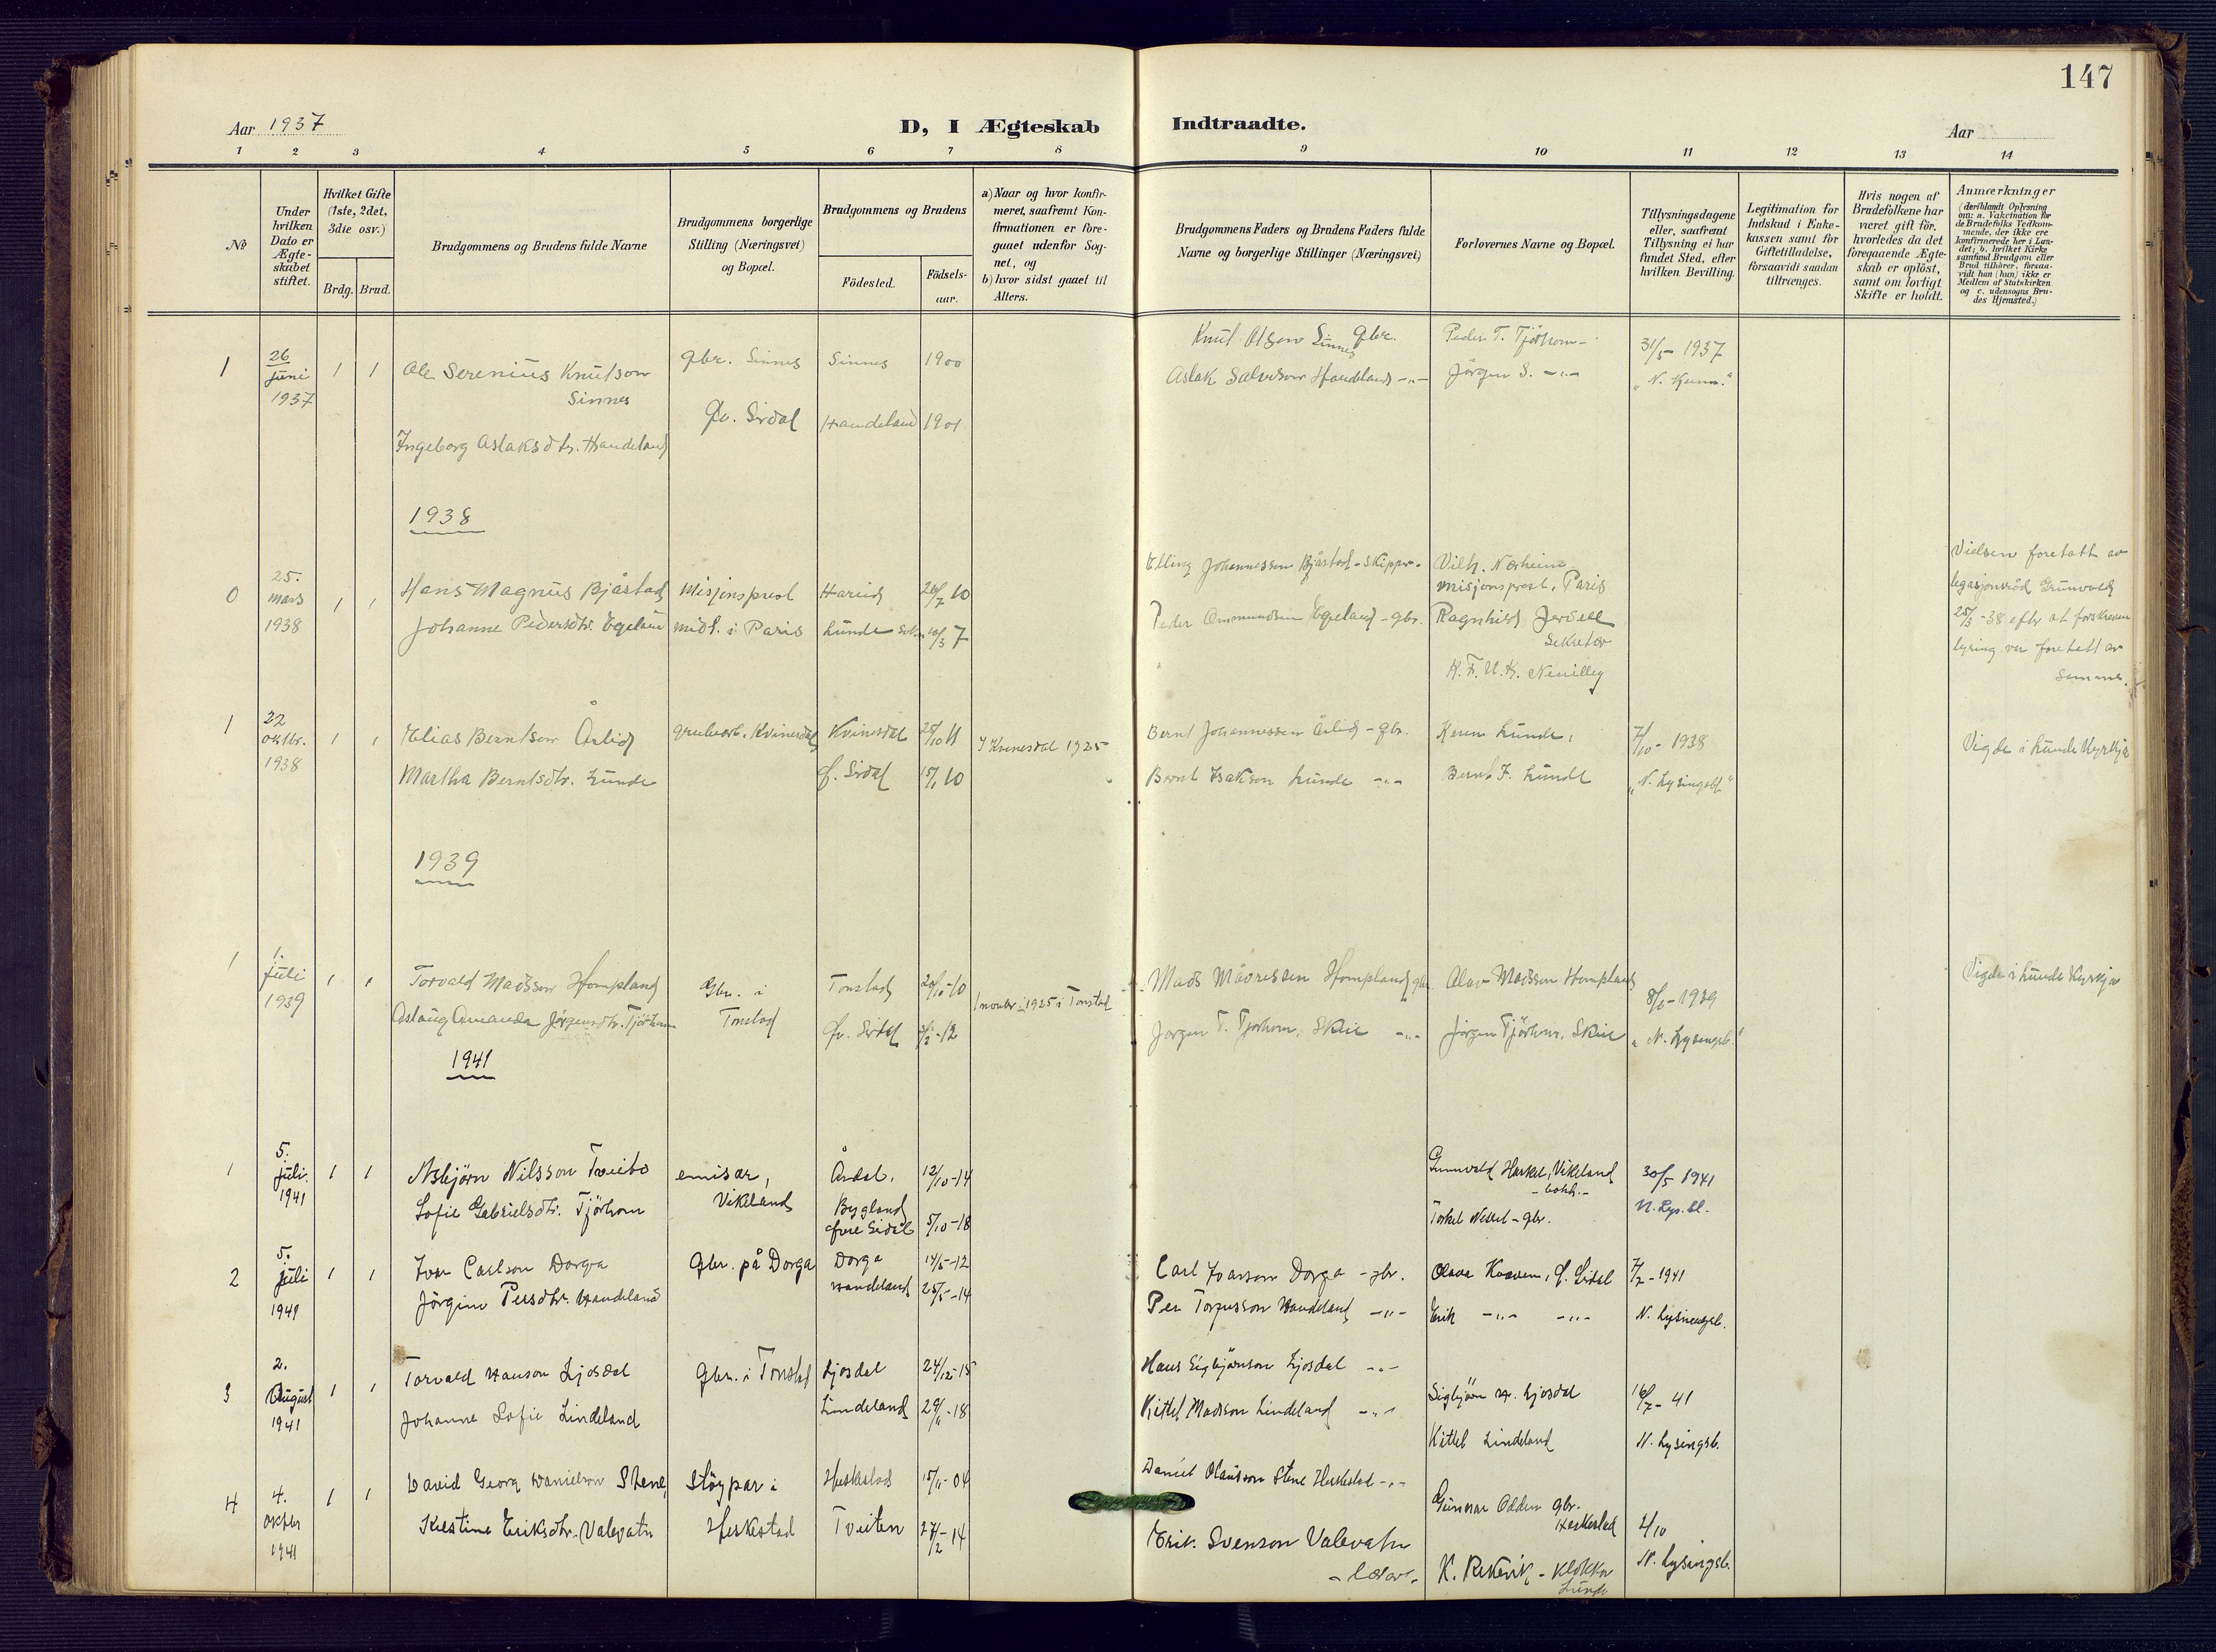 147
Aar 1937
D, I Ægteskab Indtraadte.
Aar
1 2 3 4 5 6 7 8 9 10 11 12 13 14
No
Under hvilken Dato er Ægteskabet stiftet.
Hvilket Gifte (1ste, 2det, 3die osv.)
Brdg. Brud.
Brudgommens og Brudens fulde Navne
Brudgommens borgerlige Stilling (Næringsvei) og Bopæl.
Brudgommens og Brudens
Födested. Födsels-aar.
a) Naar og hvor konfirmeret, saafremt Konfirmationen er foregaaet udenfor Sognet, og
b) hvor sidst gaaet til Alters.
Brudgommens Faders og Brudens Faders fulde Navne og borgerlige Stillinger (Næringsvei)
Forlovernes Navne og Bopæl.
Tillysningsdagene eller, saafremt Tillysning ei har fundet Sted, efter hvilken Bevilling.
Legitimation for Indskud i Enkekassen samt for Giftetilladelse, forsaavidt saadan tiltrænges.
Hvis nogen af Brudefolkene har været gift för, hvorledes da det foregaaende Ægteskab er oplöst, samt om lovligt Skifte er holdt.
Anmærkninger
(deriblandt Oplysning om: a. Vakcination for de Brudefolks Vedkommende, der ikke ere konfirmerede her i Landet; b. hvilket Kirkesamfund Brudgom eller Brud tilhörer, forsaavidt han (hun) ikke er Medlem af Statskirken og c. udensogns Brudes Hjemsted.)
1 26 juni 1937 1 1
Ole Serenius Knutson Sinnes
gbr. Sinnes
Sinnes 1900
Knut Olsen Sinnes gbr.
Peder T. Tjörhom
31/5 - 1937
Ingeborg Aslaksdtr. Handeland
Öv. Sirdal
Handeland 1901
Aslak Salveson Handeland -"-
Jörgen S. -"-
1938
0 25. mars 1938 1 1
Hans Magnus Bjåstad
Misjonsprest
Hareid 26/7 10
Elling Johannessen Bjåstad - skipper.
Vilh. Nærheim misjonsprest, Paris
Johanne Pedersdtr. Egeland
midl. i Paris
Lunde 10/3 7
Peder Ommundsen Egeland - gbr.
Ragnhild Jervell Sekretær
K.F.U.K. Neuilly
Vielsen foretatt av legasjonsråd Grünvold 25/3 - 38 efter at forskreven lysing var foretatt av samme.
1 22 oktbr. 1938 1 1
Elias Berntsen Årlid
Kvinesdal
Kvinesdal 25/10 11
I Kvinesdal 1925
Bernt Johannessen Årlid - gbr.
Lunde
7/10 - 1938
Vigde i Lunde Kyrkje
Martha Berntsdtr. Lunde
Ö. Sirdal 15/1 10
Bernt Isakson Lunde -"-
Bernt I. Lunde
"N. Lysingsbl."
1939
1 1. juli 1939 1 1
Torvald Madsson Hompland
Gbr. i Tonstad
Tonstad 20/10-10
1 novbr. 1925 i Tonstad
Mads Hompland gbr.
Olav Madsson Hompland
8/6 - 1939
Vigde i Lunde Kyrkje
Aslaug Amanda Jörgensdtr. Tjörhom
Öv. Sirdal
Jörgen T. Tjörhom, Skeie -"-
Jörgen Tjörhom, Skeie
"N. Lysingsbl."
1941
1 5. juli 1941 1 1
Asbjörn Nilsson Tveito
emisær, Vikeland
Årdal, Bygland 12/10-14
Gunvald Vikeland
30/5 1941
Sofie Gabrielsdtr. Tjörhom
övre Sirdal 5/10-18
Torkel - gbr.
N. Lys. bl.
2 5. juli 1941 1 1
Ivar Carlson Dorga
Gbr. på Dorga
Dorga 14/5-12
Carl Ivarson Dorga - gbr.
Kvæven, Ö. Sirdal
7/2 - 1941
Jörgine Persdtr. Handeland
Handeland 25/5-14
Per Torgusson Handeland -"-
Erik -"- -"-
N. Lysningsbl.
3 2. August 1941 1 1
Torvald Hanson Ljosdal
Gbr. i Tonstad
Ljosdal 24/12-15
Hans Sigbjörnson Ljosdal -"-
Sigbjörn H. Ljosdal
16/7 - 41
Johanne Sofie Lindeland
Lindeland 29/1-18
Kittel Madsson Lindeland -"-
Kittel Lindeland
N. Lysingsb.
4 4. oktbr 1941 1 1
David Georg Danielson Stene,
Heskestad
Heskestad 15/11-04
Daniel Olausson Stene Heskestad -"-
Gunnar Odden gbr. Heskestad
2/10
Kristine Eriksdtr. Valevatn
Tveiten 27/2-14
Erik Svenson Valevatn - lærar -
K. Rekevik - Klokkar Lunde
N. Lysingsb.